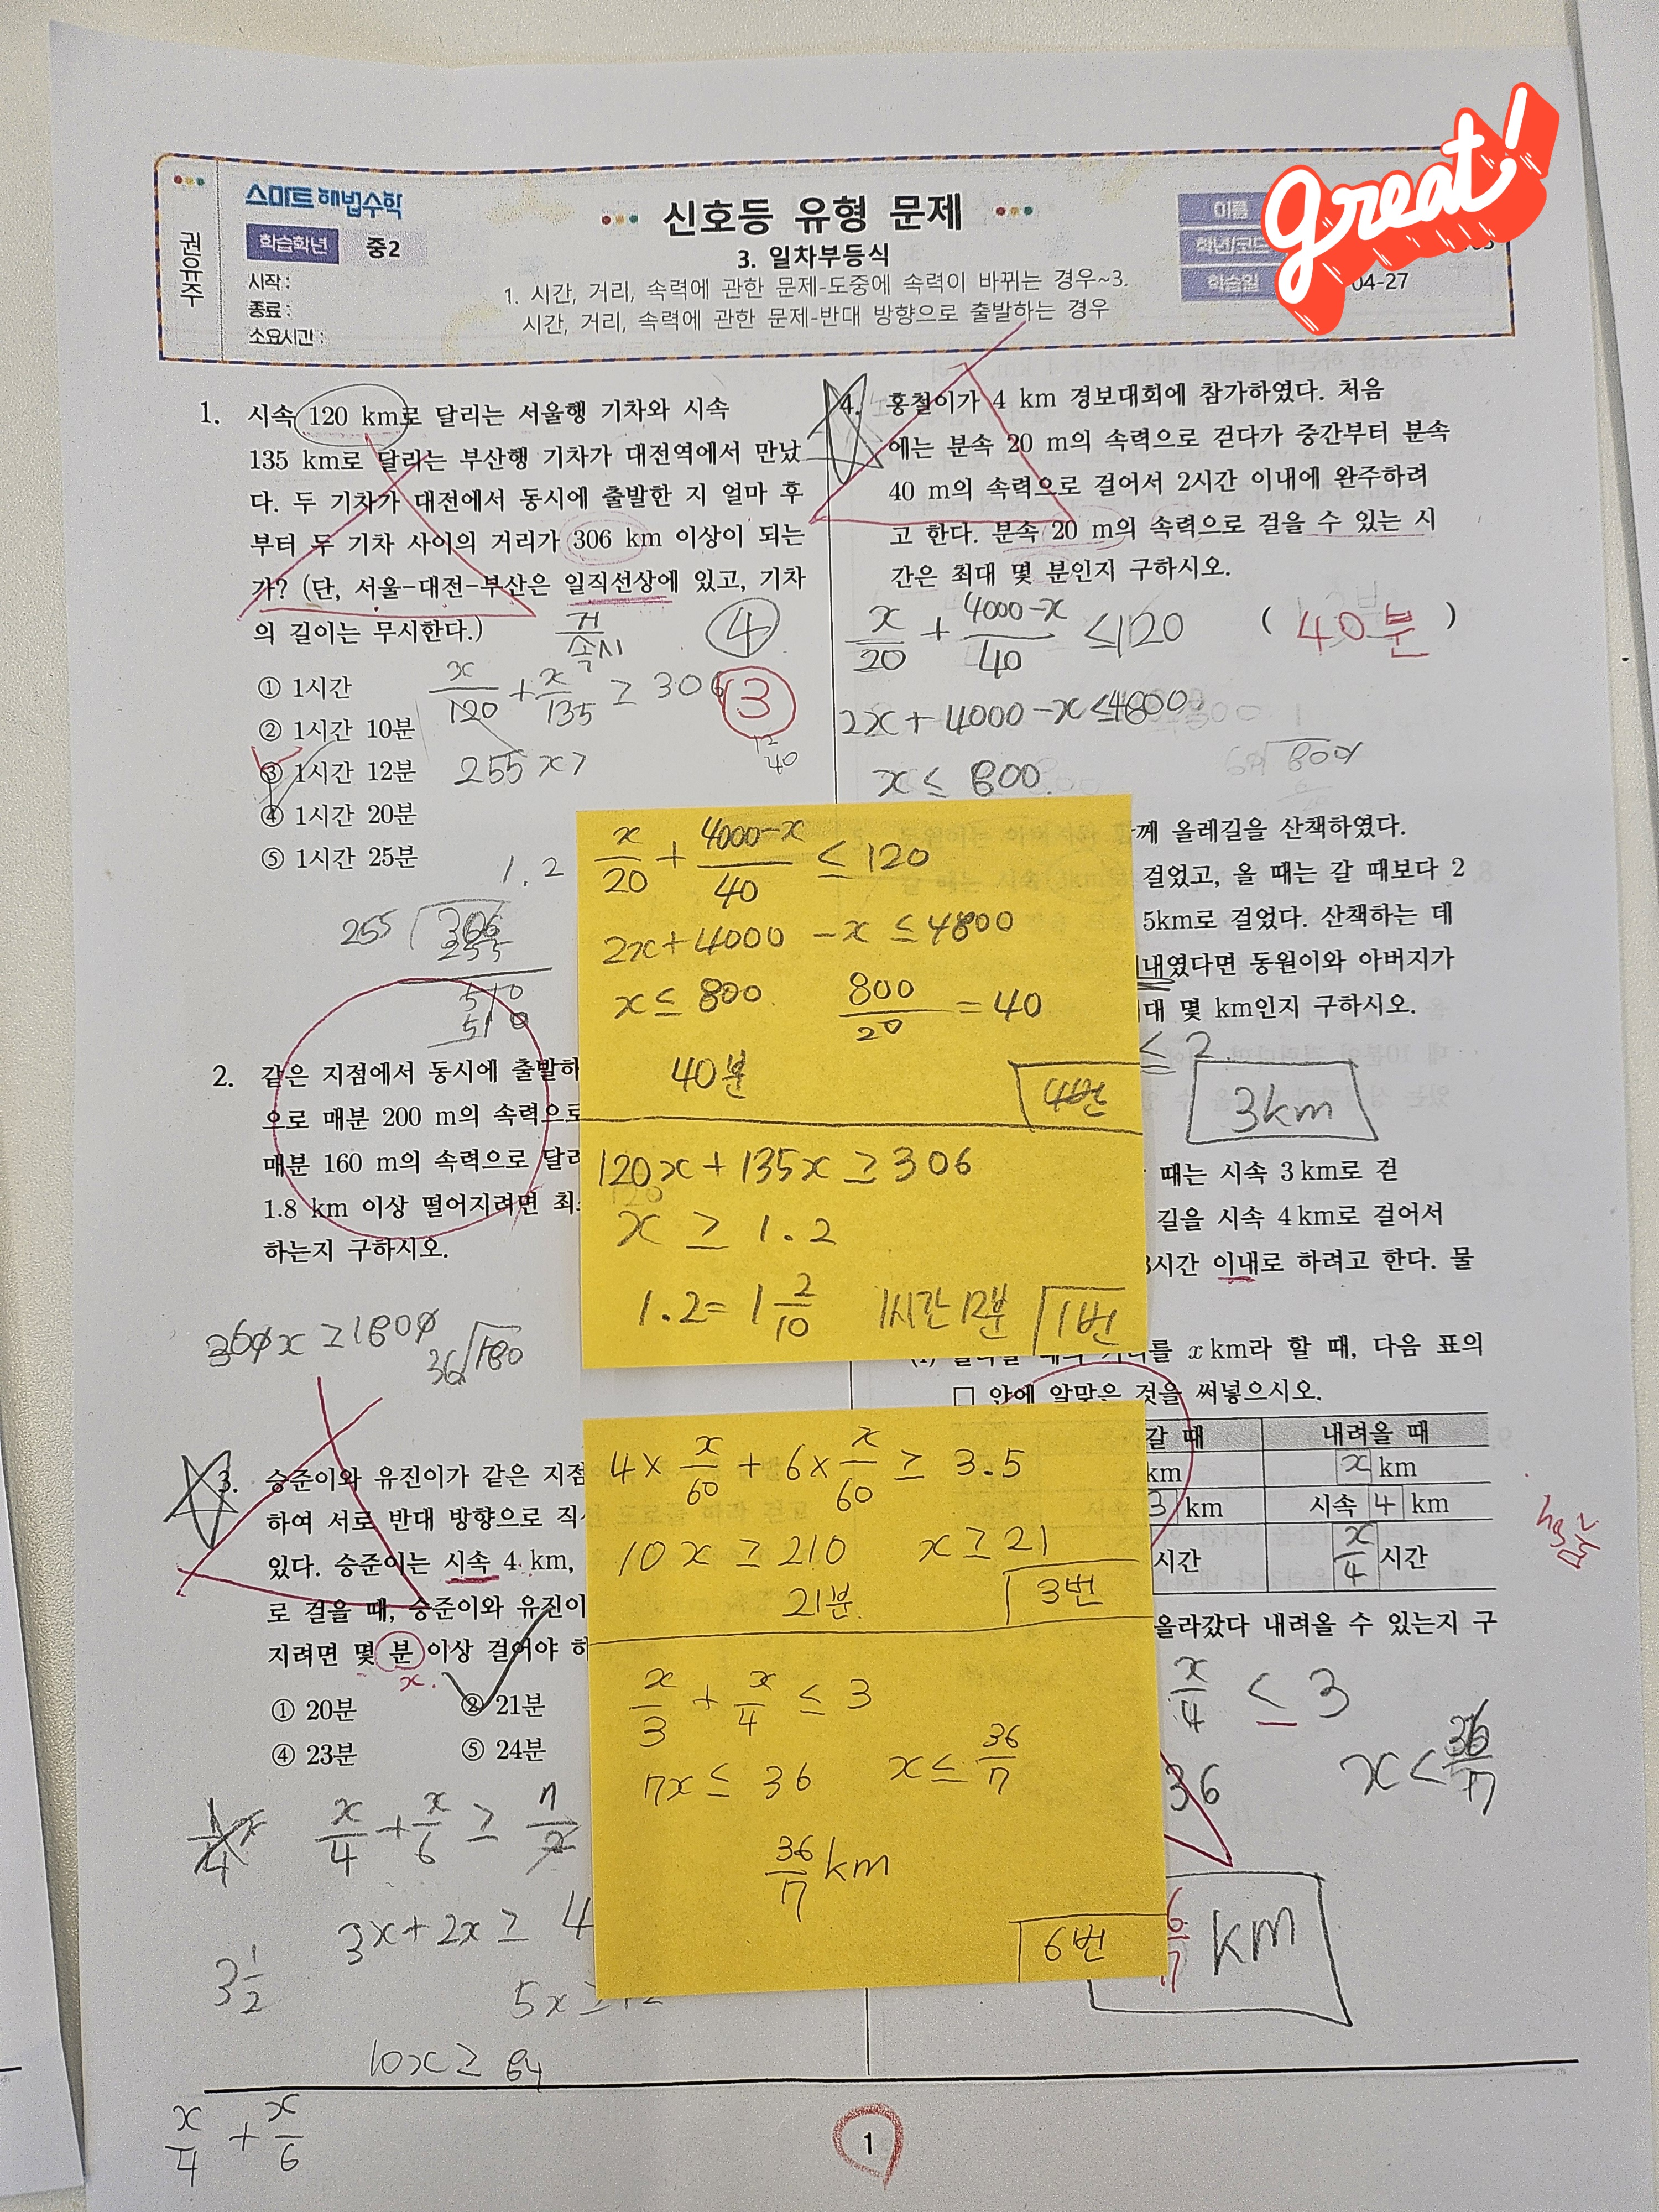 권유주
스마트해법수학
학습학년 중2
시작 :
종료 :
소요시간 :
신호등 유형 문제
3. 일차부등식
1. 시간, 거리, 속력에 관한 문제-도중에 속력이 바뀌는 경우~3.
시간, 거리, 속력에 관한 문제-반대 방향으로 출발하는 경우
이름
학년/코드
학습일 04-27
great!
1. 시속 120 km로 달리는 서울행 기차와 시속
135 km로 달리는 부산행 기차가 대전역에서 만났
다. 두 기차가 대전에서 동시에 출발한 지 얼마 후
부터 두 기차 사이의 거리가 306 km 이상이 되는
가? (단, 서울-대전-부산은 일직선상에 있고, 기차
의 길이는 무시한다.)
거
속시
④
① 1시간
② 1시간 10분
③ 1시간 12분
④ 1시간 20분
⑤ 1시간 25분
x/120 + x/135 ≥ 306
③
12
40
255x ≥
1.2
255 306
255
510
510
2. 같은 지점에서 동시에 출발하
으로 매분 200 m의 속력으로
매분 160 m의 속력으로 달리
1.8 km 이상 떨어지려면 최
하는지 구하시오.
360x ≥ 1800
36 180
3. 승준이와 유진이가 같은 지점
하여 서로 반대 방향으로 직
있다. 승준이는 시속 4 km,
로 걸을 때, 승준이와 유진이
지려면 몇 분 이상 걸어야 하
x.
① 20분
② 21분
④ 23분
⑤ 24분
x/4 + x/6 ≥ 7/2
3x+2x ≥ 4
3 1/2
5x ≥
10x ≥ 84
x/4 + x/6
4. 홍철이가 4 km 경보대회에 참가하였다. 처음
에는 분속 20 m의 속력으로 걷다가 중간부터 분속
40 m의 속력으로 걸어서 2시간 이내에 완주하려
고 한다. 분속 20 m의 속력으로 걸을 수 있는 시
간은 최대 몇 분인지 구하시오.
( 40분 )
x/20 + 4000-x/40 ≤ 120
2x+4000-x ≤ 4800
x ≤ 800
께 올레길을 산책하였다.
걸었고, 올 때는 갈 때보다 2
5km로 걸었다. 산책하는 데
내였다면 동원이와 아버지가
대 몇 km인지 구하시오.
≤ 2
3km
때는 시속 3 km로 걷
길을 시속 4 km로 걸어서
3시간 이내로 하려고 한다. 물
를 x km라 할 때, 다음 표의
□ 안에 알맞은 것을 써넣으시오.
갈 때 내려올 때
km x km
3 km 시속 4 km
시간 x/4 시간
올라갔다 내려올 수 있는지 구
x/4 ≤ 3
36
x < 36/7
6/7 km
x/20 + 4000-x/40 ≤ 120
2x+4000 -x ≤ 4800
x ≤ 800. 800/20 = 40
40분
4번
120x + 135x ≥ 306
x ≥ 1.2
1.2 = 1 2/10 1시간 12분 1번
4 × x/60 + 6 × x/60 ≥ 3.5
10x ≥ 210 x ≥ 21
21분.
3번
x/3 + x/4 ≤ 3
7x ≤ 36 x ≤ 36/7
36/7 km
6번
1